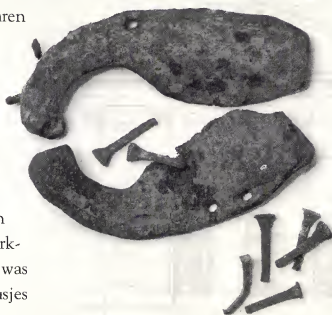 ren
n
rk-
was
sjes